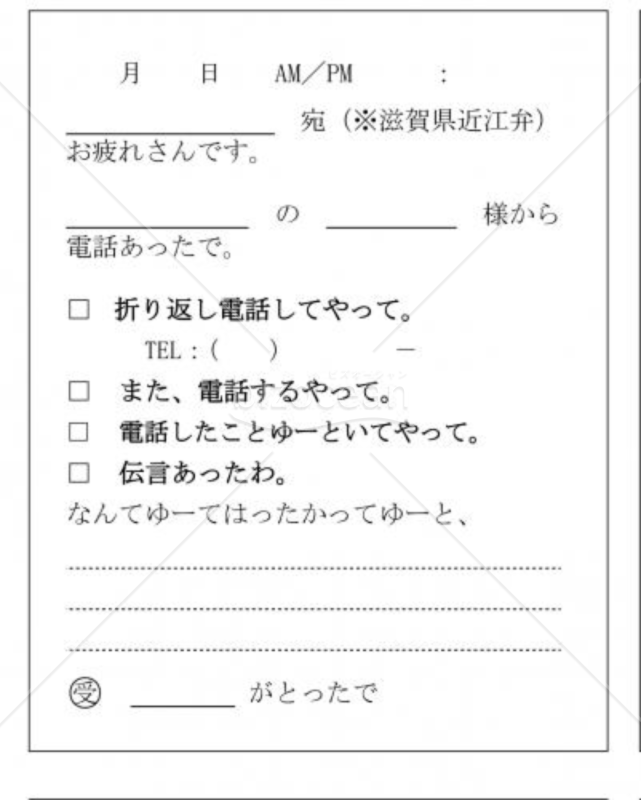 月 日 AM／PM ：
宛（※滋賀県近江弁）
お疲れさんです。
の 様から
電話あったで。
□ 折り返し電話してやって。
TEL：( ) －
□ また、電話するやって。
□ 電話したことゆーといてやって。
□ 伝言あったわ。
なんてゆーてはったかってゆーと、
㊝ がとったで